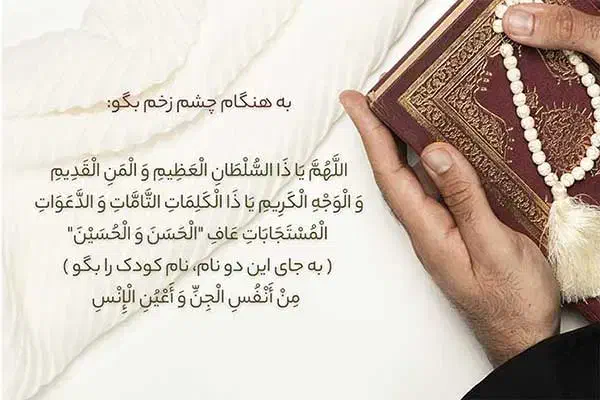 به هنگام چشم زخم بگو:
اللَّهُمَّ يَا ذَا السُّلْطَانِ الْعَظِيمِ وَ الْمَنِ الْقَدِيمِ
وَ الْوَجْهِ الْكَرِيمِ يَا ذَا الْكَلِمَاتِ التَّامَّاتِ وَ الدَّعَوَاتِ
الْمُسْتَجَابَاتِ عَافِ "الْحَسَنَ وَ الْحُسَيْنَ"
( به جای این دو نام، نام کودک را بگو )
مِنْ أَنْفُسِ الْجِنِّ وَ أَعْيُنِ الْإِنْسِ